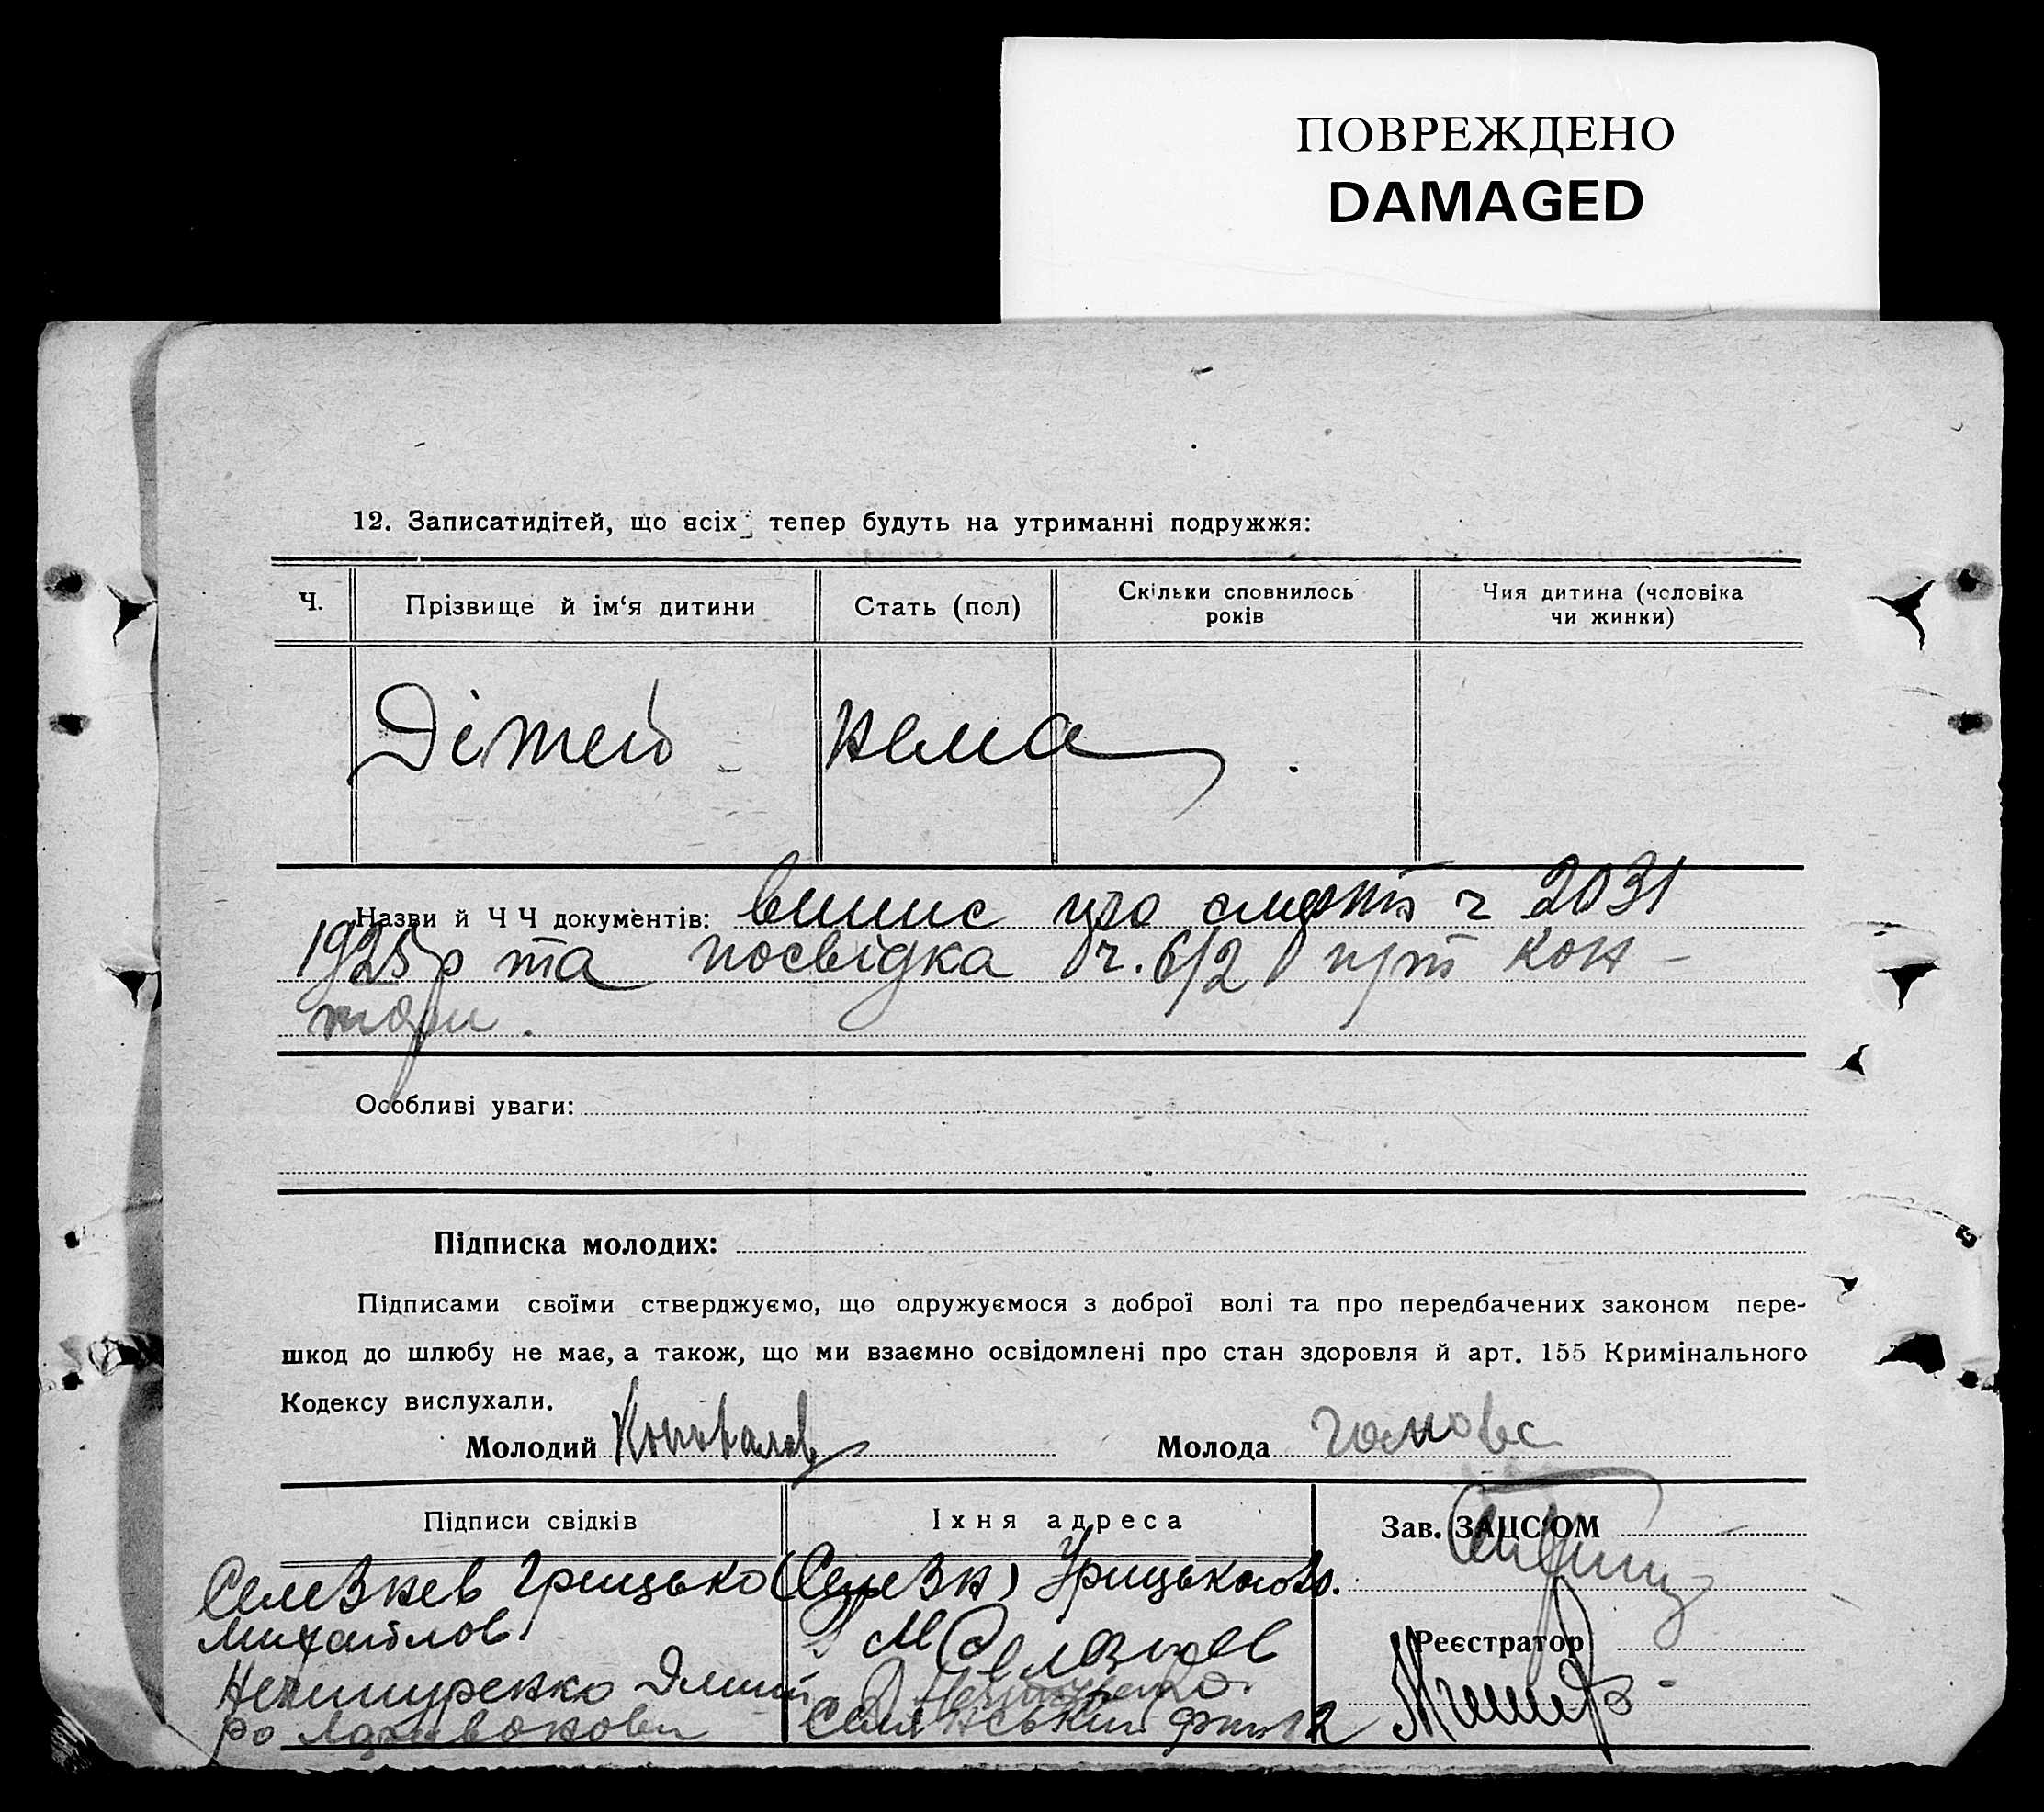 ПОВРЕЖДЕНО
DAMAGED
12. Записатидітей, що всіх тепер будуть на утриманні подружжя:
Ч.
Прізвище й ім‘я дитини
Стать (пол)
Скільки сповнилось
років
Чия дитина (чоловіка
чи жинки)
Дітей - нема.
Назви й Ч Ч документів: випис про смерть ч 2031
1925 р та посвідка ч. 612 кон-
тори.
Особливі уваги:
Підписка молодих:
Підписами своїми стверджуємо, що одружуємося з доброї волі та про передбачених законом пере-
шкод до шлюбу не має, а також, що ми взаємно освідомлені про стан здоровля й арт. 155 Кримінального
Кодексу вислухали.
Молодий Коновалов
Молода
Підписи свідків
Їхня адреса
Зав. ЗАЦС‘ОМ
Селезнев Грицько
Михайлов
Реєстратор
Нечипуренко
Селянський 12